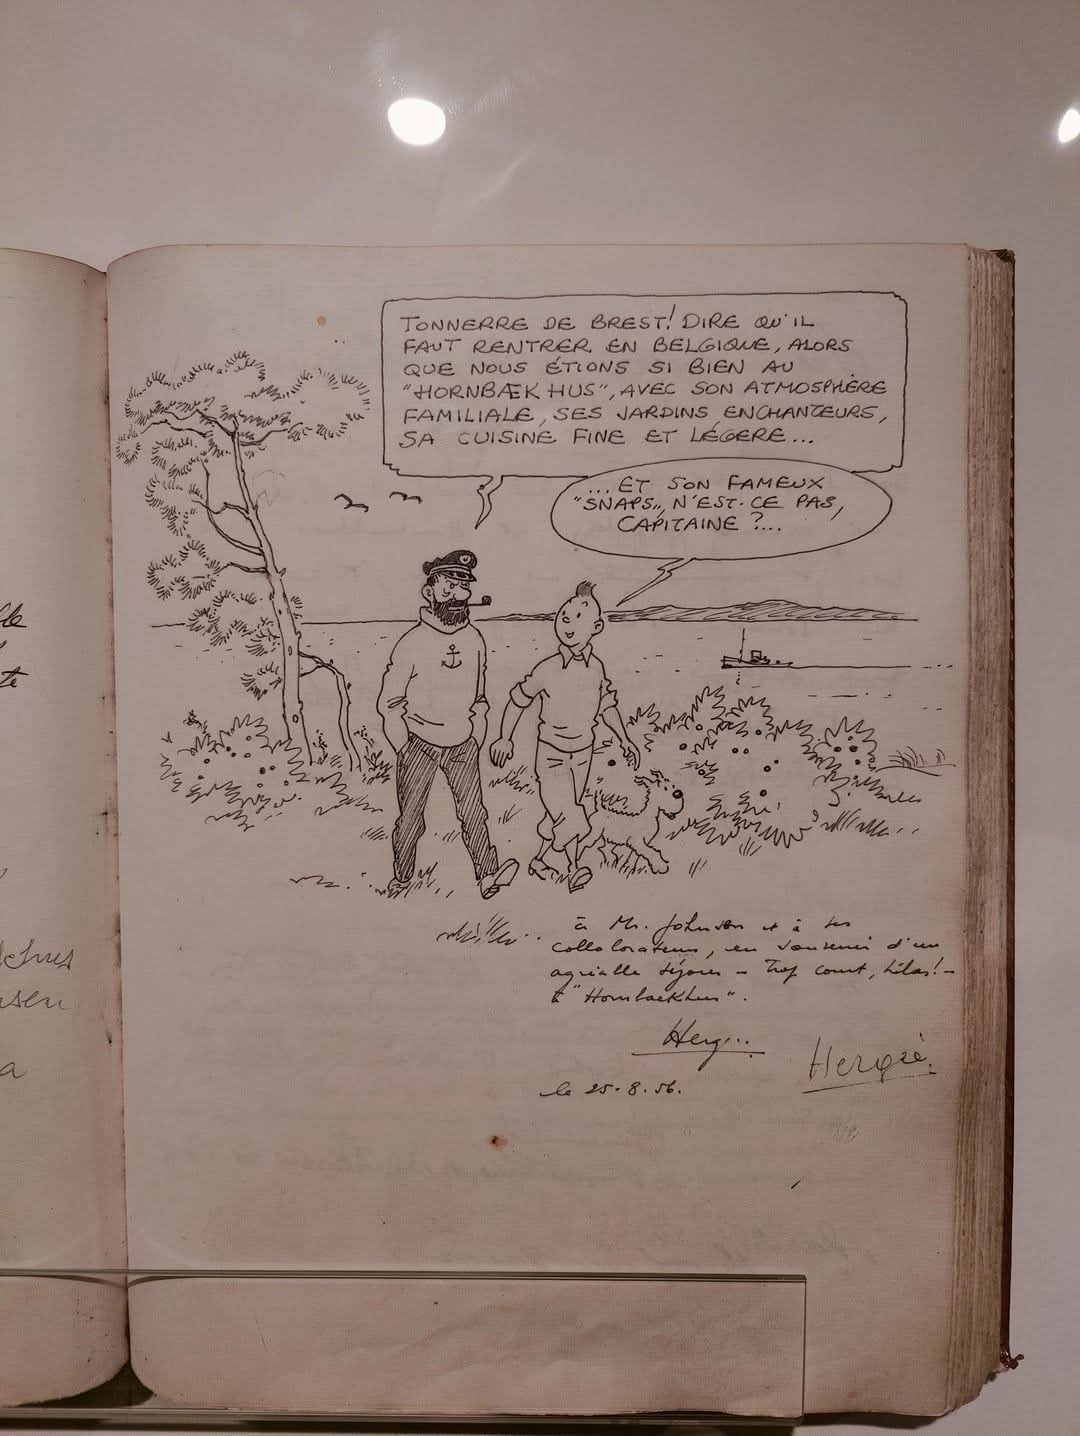 TONNERRE DE BREST! DIRE QU'IL
FAUT RENTRER EN BELGIQUE, ALORS
QUE NOUS ÉTIONS SI BIEN AU
"HORNBÆK HUS", AVEC SON ATMOSPHÈRE
FAMILIALE, SES JARDINS ENCHANTEURS,
SA CUISINE FINE ET LÉGÈRE...
...ET SON FAMEUX
"SNAPS", N'EST-CE PAS,
CAPITAINE ?...
à Mr. Johnsen et à ses
collaborateurs, en souvenir d'un
agréable séjour – trop court, hélas! –
à "Hornbaekhus".
Hergé
Hergé.
le 25.8.56.